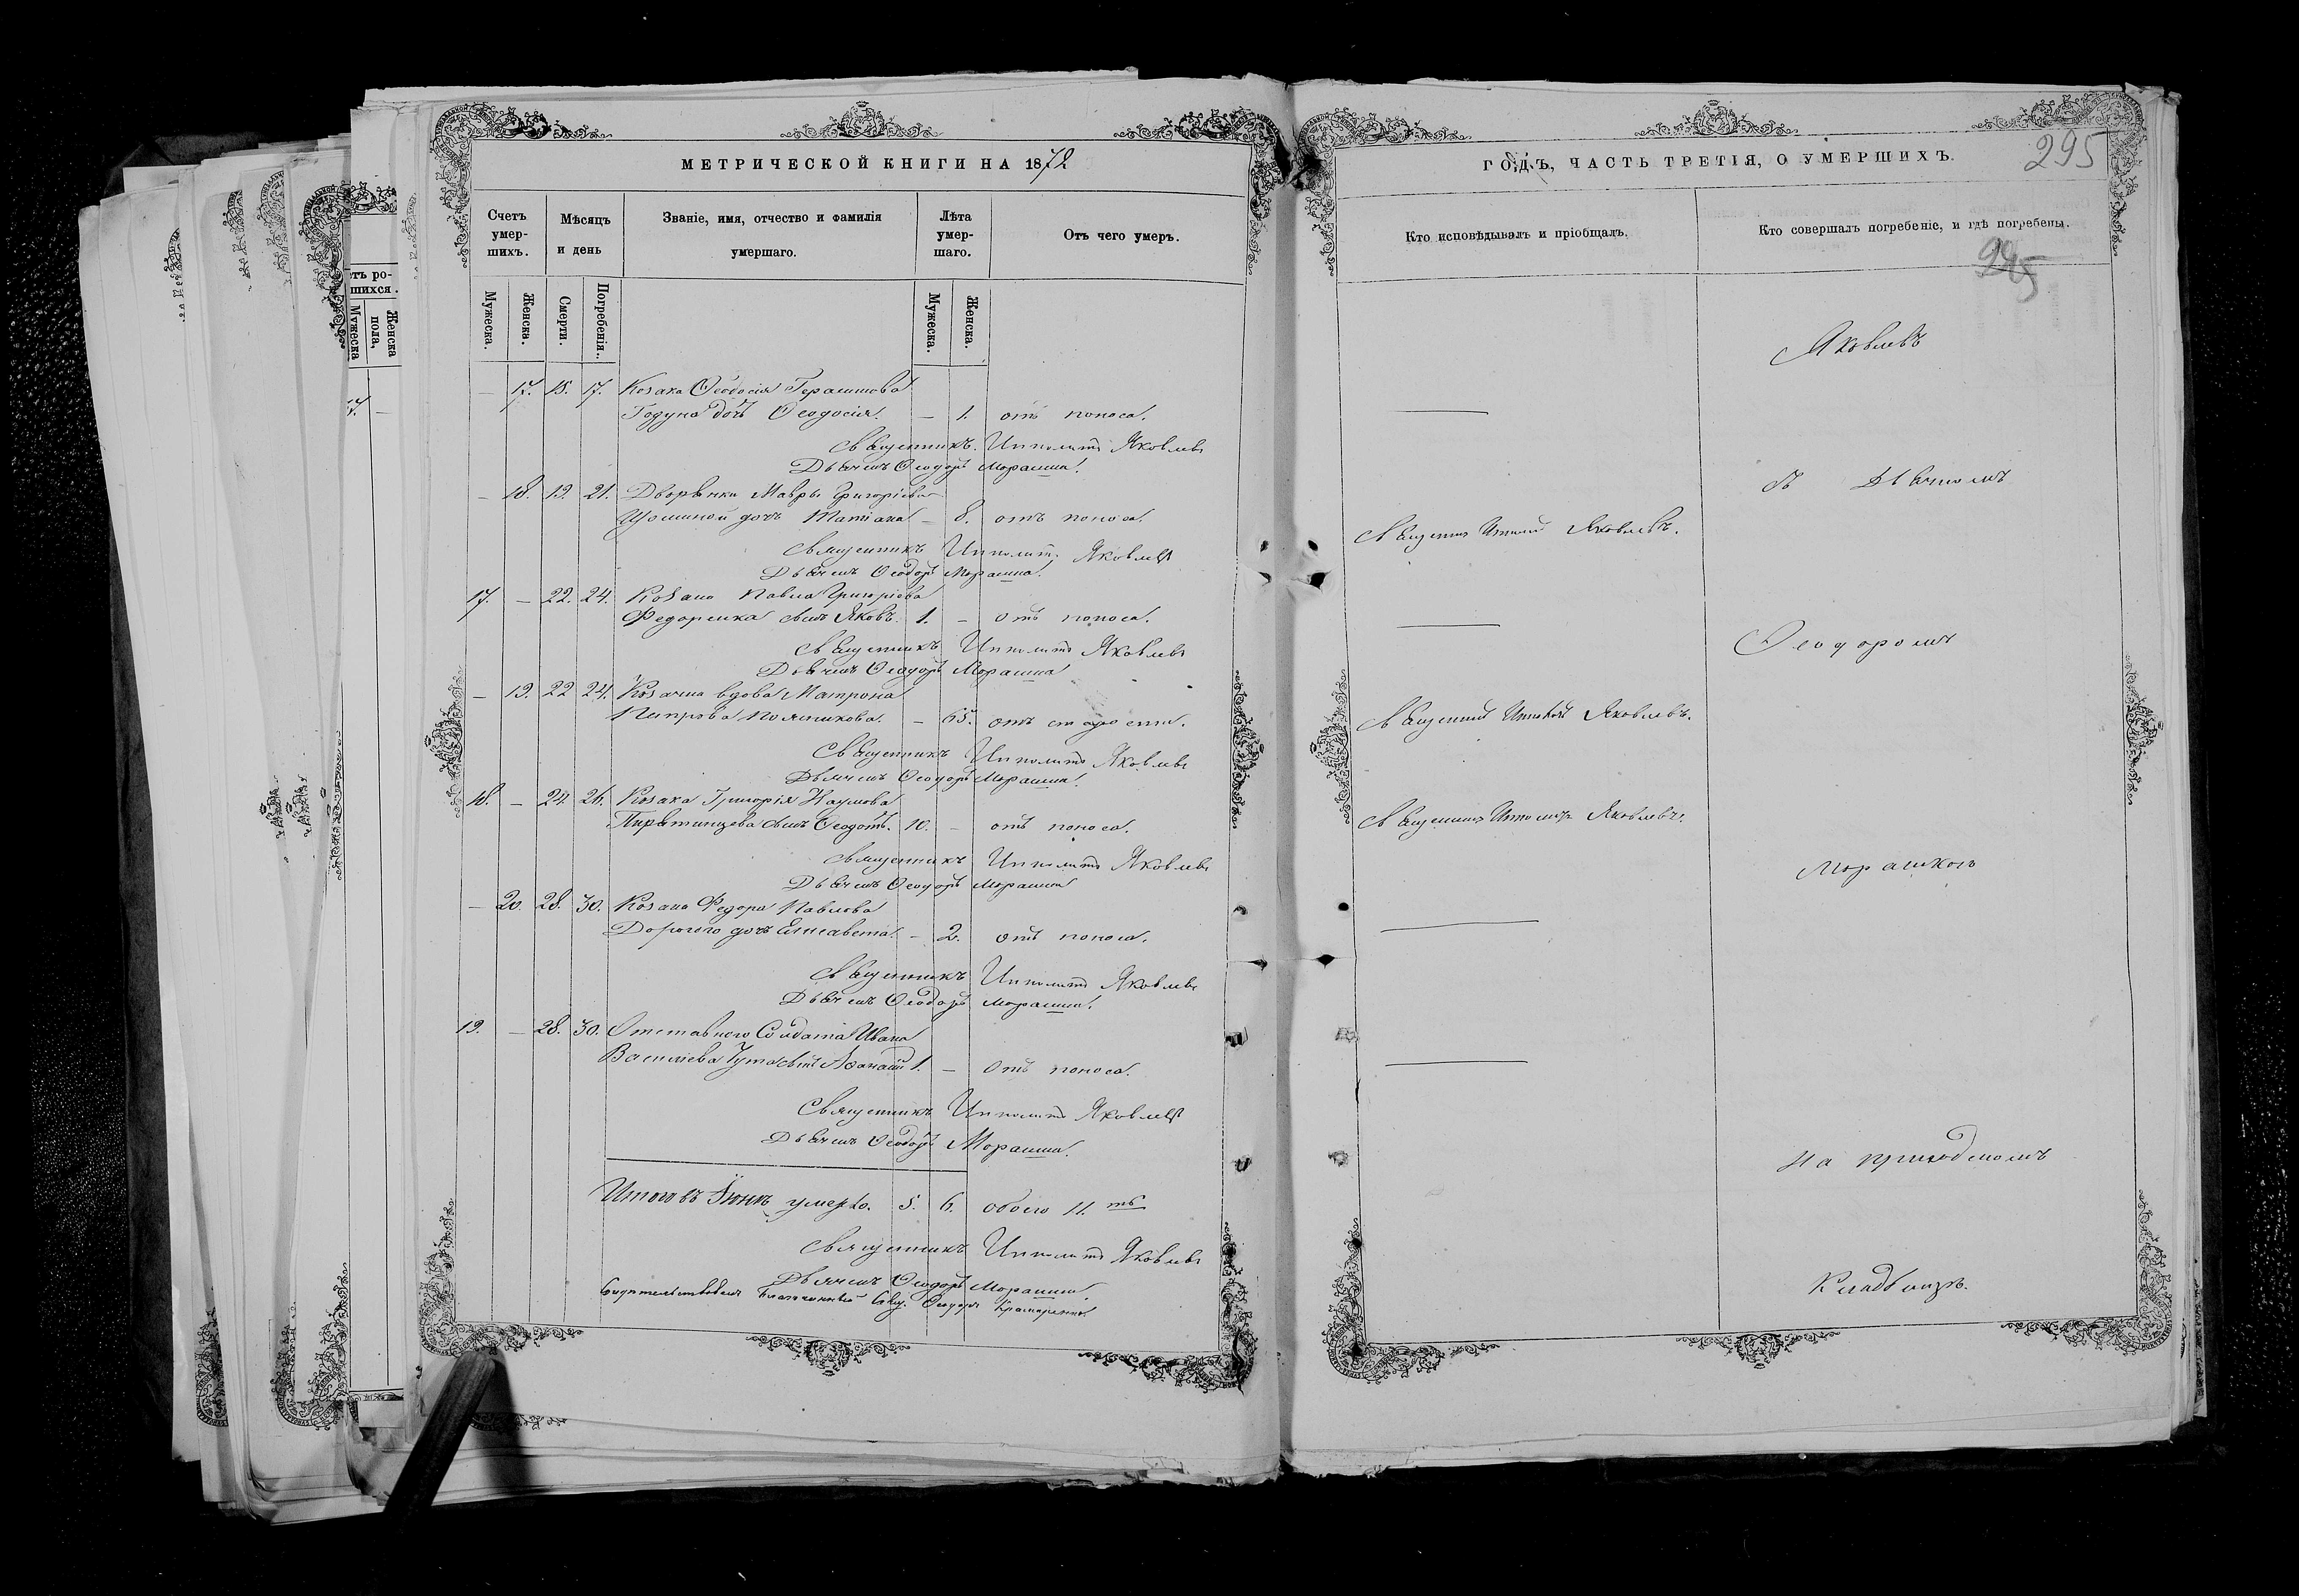 МЕТРИЧЕСКОЙ КНИГИ НА 1872
Счетъ умер-шихъ.
Мѣсяцъ и день
Званіе, имя, отчество и фамилія умершаго.
Лѣта умер-шаго.
Отъ чего умеръ.
Мужеска.
Женска.
Смерти.
Погребенія.
Мужеска.
Женска.
— 17. 15. 17. Козака Ѳеодосія Герасимова
Годуна дочь Ѳеодосія. — 1. отъ поноса.
Священникъ Ипполитъ Яковлевъ
Дьячекъ Ѳеодоръ Морашка.
— 18. 19. 21. Дворянки Мавры Григоріевой
дочь Татіана — 8. отъ поноса.
Священникъ Ипполитъ Яковлевъ
Дьячекъ Ѳеодоръ Морашка.
17. — 22. 24. Козака Павла Григоріева
Федоренка сынъ Яковъ. 1. — отъ поноса.
Священникъ Ипполитъ Яковлевъ
Дьячекъ Ѳеодоръ Морашка
— 19. 22 24. Козачка вдова Матрона
Петрова — 65. отъ старости.
Священникъ Ипполитъ Яковлевъ
Дьячекъ Ѳеодоръ Морашка.
18. — 24 26. Козака Григорія Наумова
Пирятинцева сынъ Ѳеодотъ. 10. — отъ поноса.
Священникъ Ипполитъ Яковлевъ
Дьячекъ Ѳеодоръ Морашка
— 20. 28. 30. Козака Федора Павлова
Дорогого дочь Елисавета. — 2. отъ поноса.
Священникъ Ипполитъ Яковлевъ
Дьячекъ Ѳеодоръ Морашка.
19. — 28. 30. Отставного Солдата Ивана
Василіева сынъ Аѳанасій 1. — отъ поноса.
Священникъ Ипполитъ Яковлевъ
Дьячекъ Ѳеодоръ Морашка.
Итого въ Іюнѣ умерло. 5. 6. обоего 11. тъ
Священникъ Ипполитъ Яковлевъ
Дьячекъ Ѳеодоръ Морашка.
Благочинный Свящ. Ѳеодоръ
ГОДЪ, ЧАСТЬ ТРЕТІЯ, О УМЕРШИХЪ.
295
Кто исповѣдывалъ и пріобщалъ.
Кто совершалъ погребеніе, и гдѣ погребены.
295
Яковлевъ
съ Дьячкомъ
Священникъ Ипполитъ Яковлевъ.
Ѳеодоромъ
Священникъ Ипполитъ Яковлевъ.
Священникъ Ипполитъ Яковлевъ.
Морашкою
на приходскомъ
Кладбищѣ.